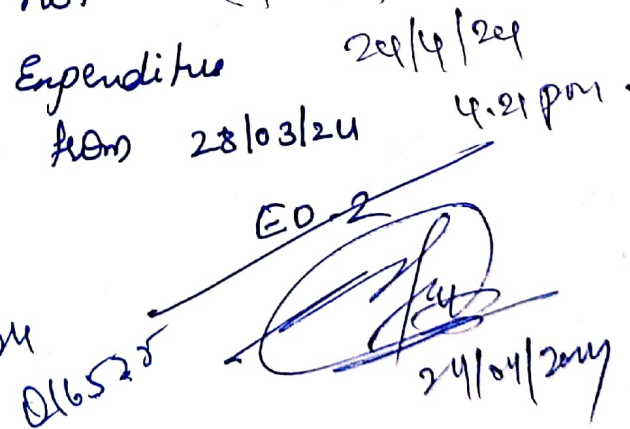 Expenditure 24/4/24
from 28/03/24 4.21 pm.
EO-2
016525
24/04/2024